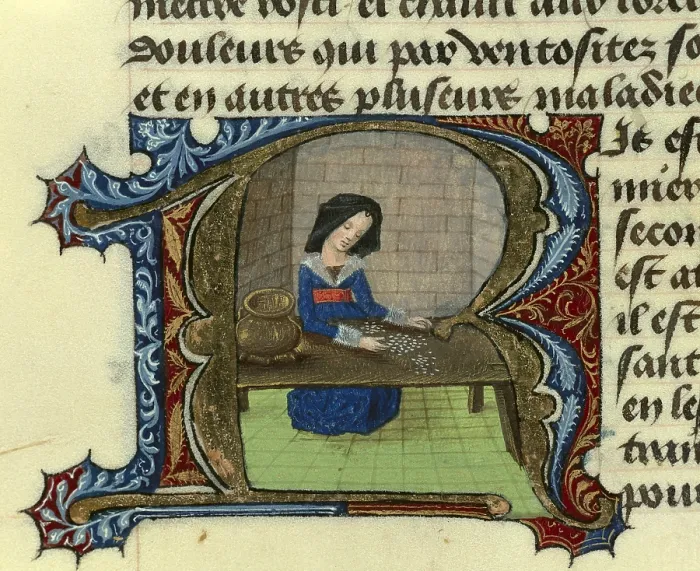 mettre et aux
douleurs qui par ventositez so
et en autres pluseurs maladie
R is est
mier
secon
est at
il est
sant
en le
pour